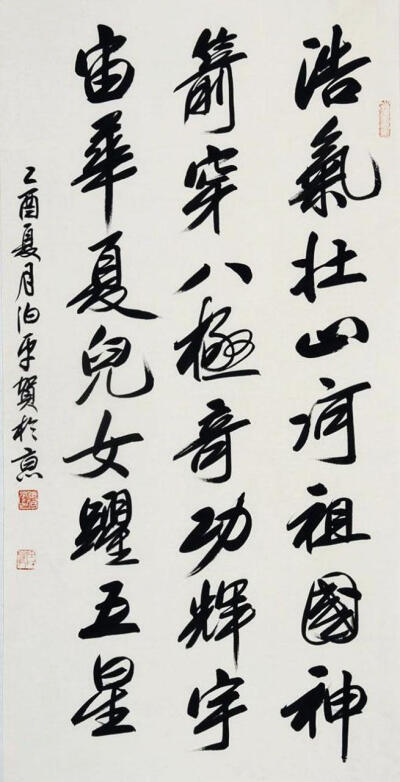 浩氣壯山河祖國神
箭穿八極奇功輝宇
宙華夏兒女躍五星
乙酉夏月泊平賀於京